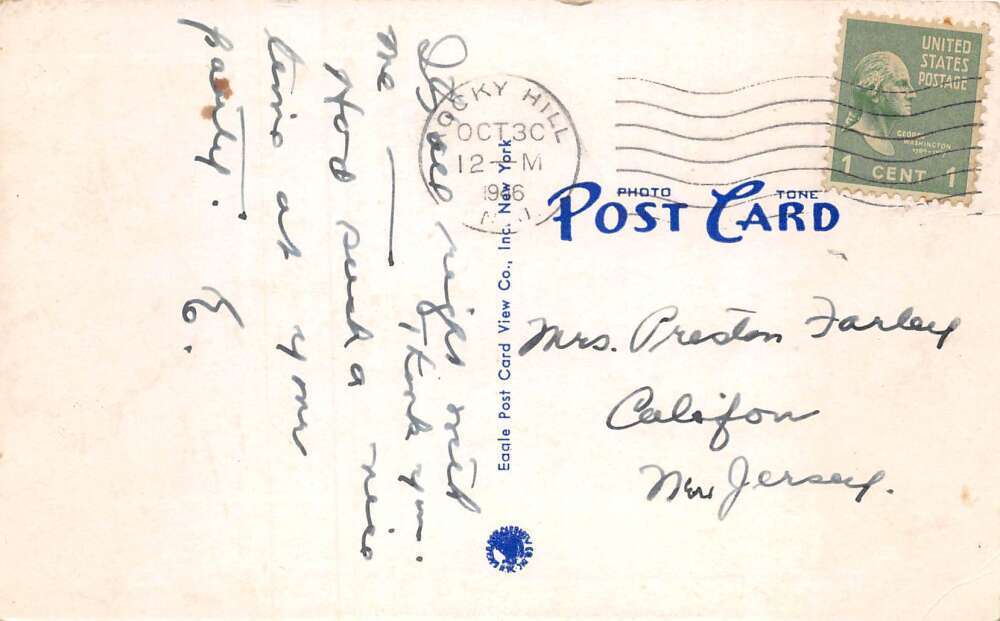 It's all right with
me — Thank you.
Had such a nice
time at your
party. E.
ROCKY HILL
OCT 30
12 - M
1946
N.J.
UNITED
STATES
POSTAGE
GEORGE
WASHINGTON
1 CENT 1
PHOTO TONE
POST CARD
Eagle Post Card View Co., Inc. New York
Mrs. Preston Farley
Califon
New Jersey.